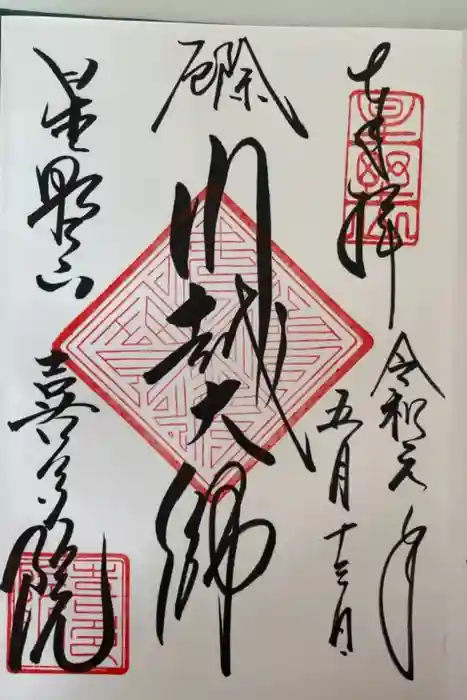 奉拝
令和元年
五月十三日
厄除
川越大師
星野山
喜多院